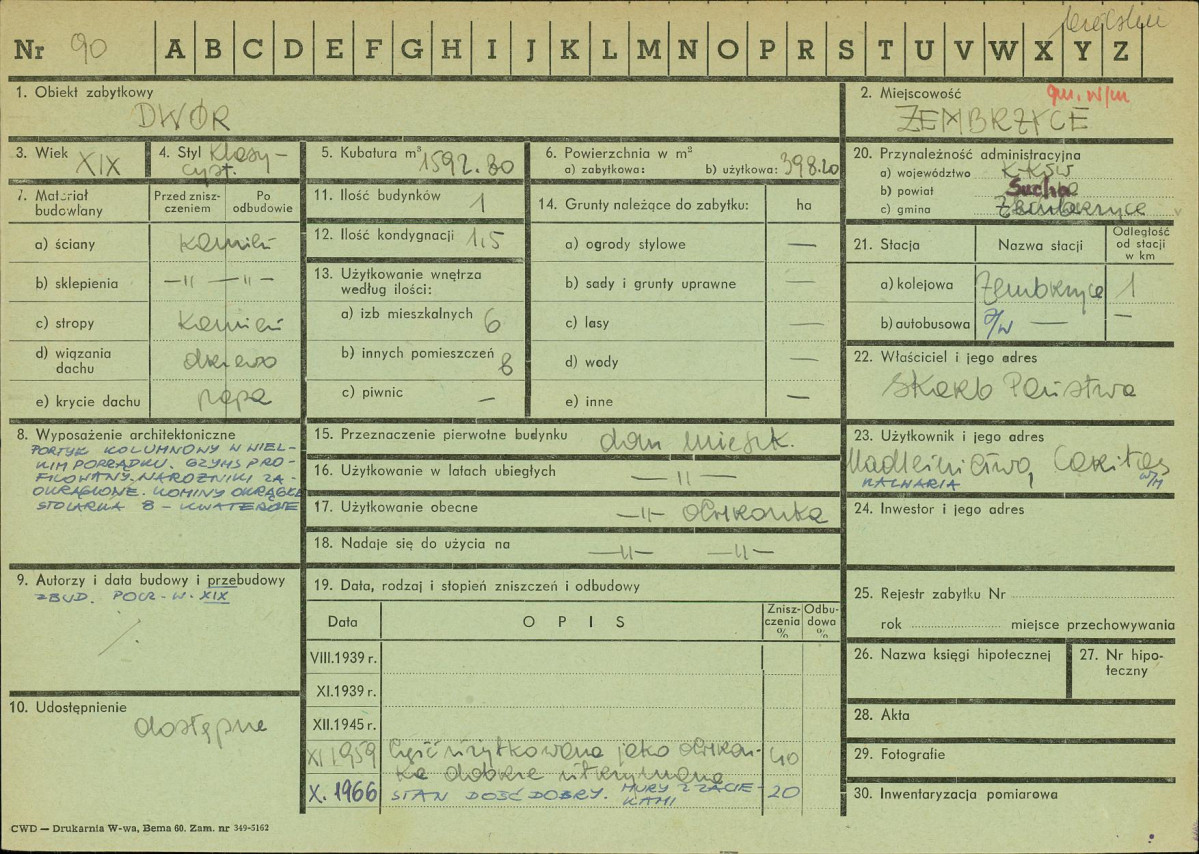 Nr 90 A B C D E F G H I J K L M N O P R S T U V W X Y Z
1. Obiekt zabytkowy
DWÓR
2. Miejscowość
gm. w/m
ZEMBRZYCE
3. Wiek XIX
4. Styl Klasy-
cyst.
5. Kubatura m³ 1592.80
6. Powierzchnia w m²
a) zabytkowa: b) użytkowa: 398.20
7. Materiał budowlany
Przed znisz-
czeniem
Po
odbudowie
a) ściany kamień
b) sklepienia —„— —„—
c) stropy kamień
d) wiązania
dachu drzewo
e) krycie dachu papa
8. Wyposażenie architektoniczne
PORTYK KOLUMNOWY W WIEL-
KIM PORZĄDKU. GZYMS PRO-
FILOWANY. NAROŻNIKI ZA-
OKRĄGLONE. KOMINY OKRĄGŁE
STOLARKA 8 – KWATEROWE
9. Autorzy i data budowy i przebudowy
ZBUD. POCZ. W. XIX
10. Udostępnienie
dostępne
11. Ilość budynków 1
12. Ilość kondygnacji 1,5
13. Użytkowanie wnętrza
według ilości:
a) izb mieszkalnych 6
b) innych pomieszczeń 8
c) piwnic —
14. Grunty należące do zabytku: ha
a) ogrody stylowe —
b) sady i grunty uprawne —
c) lasy —
d) wody —
e) inne —
15. Przeznaczenie pierwotne budynku dom mieszk.
16. Użytkowanie w latach ubiegłych —„—
17. Użytkowanie obecne —„— ochronka
18. Nadaje się do użycia na —„— —„—
19. Data, rodzaj i stopień zniszczeń i odbudowy
Data
OPIS
Znisz-
czenia
%
Odbu-
dowa
%
VIII.1939 r.
XI.1939 r.
XII.1945 r.
XI 1959 Część użytkowana jako ochron-
ka dobrze utrzymana 40
X. 1966 STAN DOŚĆ DOBRY. MURY Z ZACIE-
KAMI 20
20. Przynależność administracyjna
a) województwo KrKów
b) powiat Sucha
c) gmina Zembrzyce
21. Stacja
Nazwa stacji
Odległość
od stacji
w km
a) kolejowa Zembrzyce 1
b) autobusowa J/W — —
22. Właściciel i jego adres
Skarb Państwa
23. Użytkownik i jego adres
Nadleśnictwo, Caritas
KALWARIA W/M
24. Inwestor i jego adres
25. Rejestr zabytku Nr
rok miejsce przechowywania
26. Nazwa księgi hipotecznej
27. Nr hipo-
teczny
28. Akta
29. Fotografie
30. Inwentaryzacja pomiarowa
CWD — Drukarnia W-wa, Bema 60. Zam. nr 349-5162